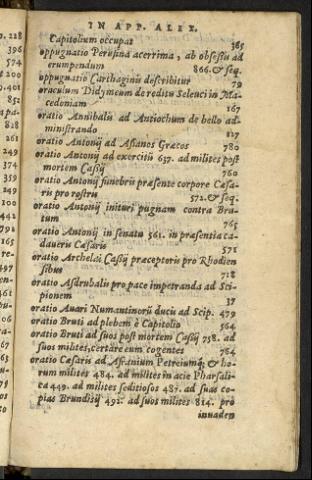 IN APP. ALEX.
Capitolium occupat 365
oppugnatio Perusina acerrima, ab obsessis ad
erumpendum 866. & seq.
oppugnatio Carthaginis describitur 79
oraculum Didymeum de reditu Seleuci in Ma-
cedoniam 167
oratio Annibalis ad Antiochum de bello ad-
ministrando 127
oratio Antonij ad Asianos Græcos 780
oratio Antonij ad exercitū 637. ad milites post
mortem Cassij 760
oratio Antonij funebris præsente corpore Cæsa-
ris pro rostris 572. & seq.
oratio Antonij inituri pugnam contra Bru-
tum 765
oratio Antonij in senatu 561. in præsentia ca-
daveris Cæsaris 571
oratio Archelai Cassij præceptoris pro Rhodien
sibus 718
oratio Asdrubalis pro pace impetranda ad Sci-
pionem 37
oratio Avari Numantinorū ducis ad Scip. 479
oratio Bruti ad plebem è Capitolio 564
oratio Bruti ad suos post mortem Cassij 758. ad
suos milites, certare eum cogentes 784
oratio Cæsaris ad Afranium Petreiumq; & ho-
rum milites 484. ad milites in acie Pharsali-
ca 449. ad milites seditiosos 487. ad suas co-
pias Brundisij 492. ad suos milites 814. pro
invaden
0. 228
396
574
200
0.401
852
a pa-
828
261
249
374
359
249
200
442
791
165
re-
497
en-
61
is-
07